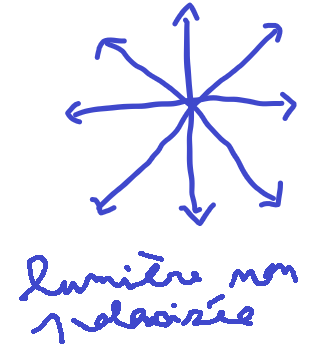 lumière non
polarisée